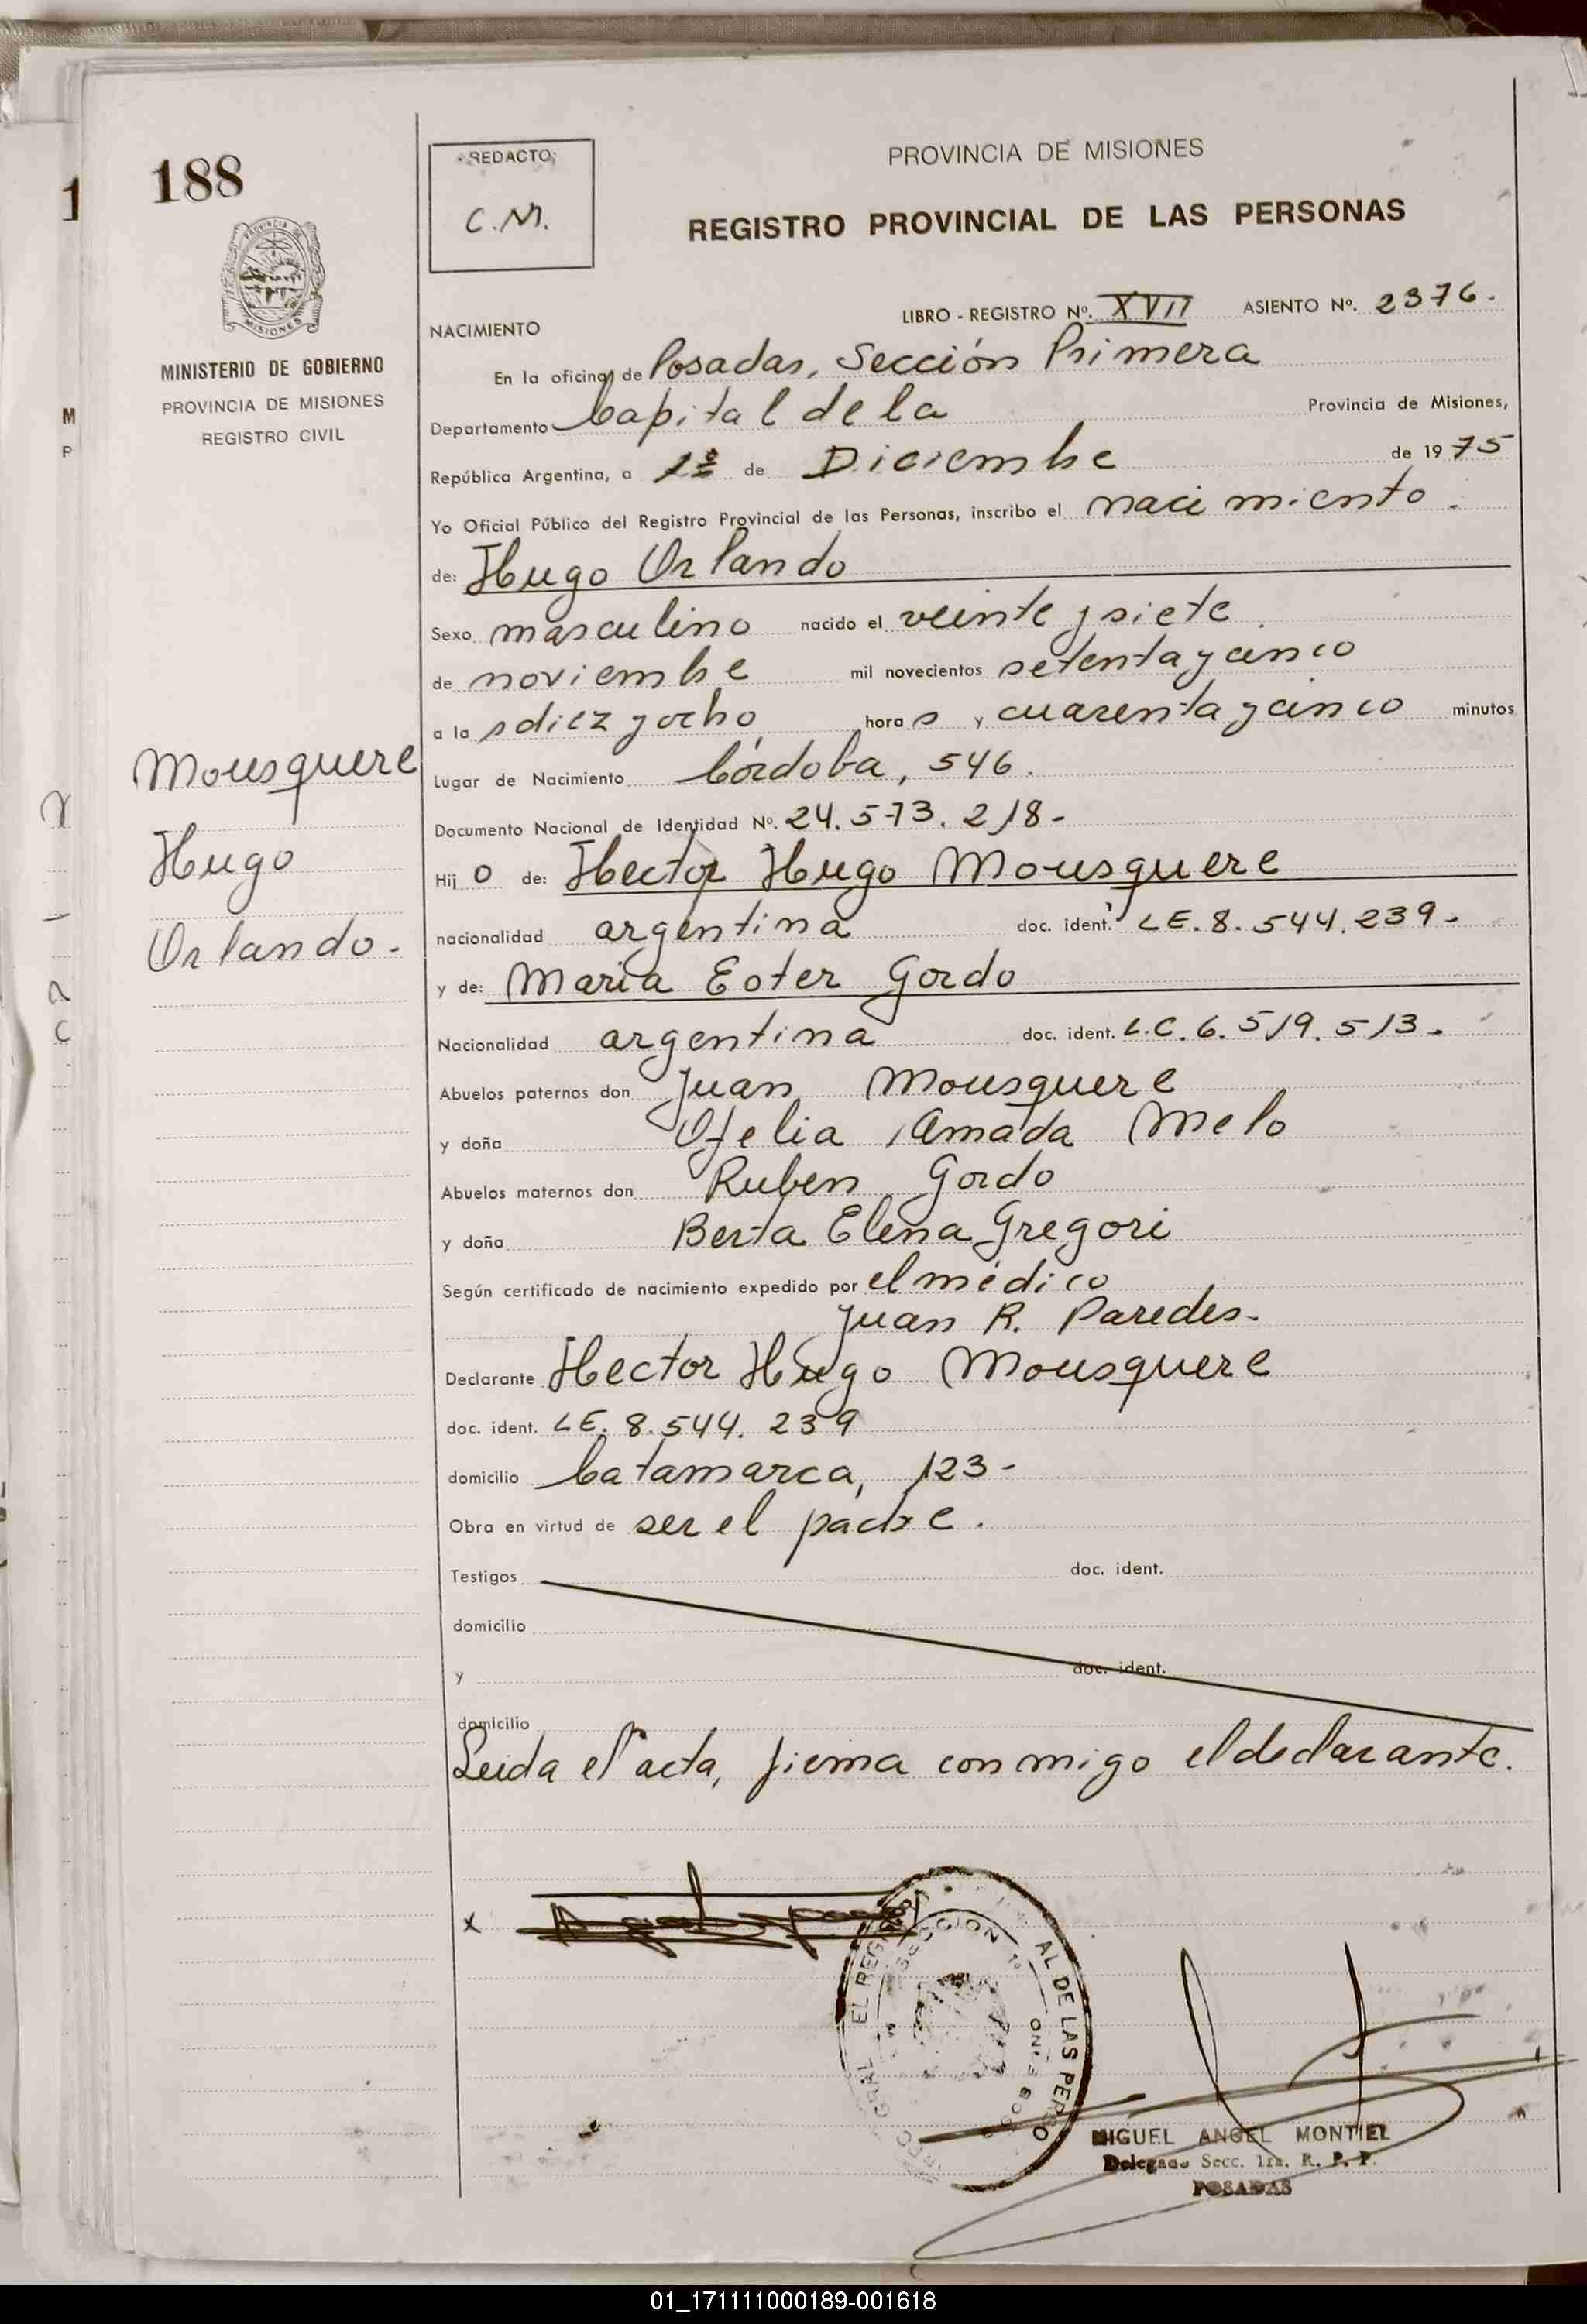 188
1
REDACTO:
C.M.
PROVINCIA DE MISIONES
REGISTRO PROVINCIAL DE LAS PERSONAS
PROVINCIA DE
MISIONES
MINISTERIO DE GOBIERNO
PROVINCIA DE MISIONES
REGISTRO CIVIL
M
P
LIBRO - REGISTRO Nº. XVII ASIENTO Nº. 2376.
NACIMIENTO
En la oficina de Posadas, Sección Primera
Departamento Capital de la Provincia de Misiones,
República Argentina, a 1º de Diciembre de 1975
Yo Oficial Público del Registro Provincial de las Personas, inscribo el nacimiento.
de: Hugo Orlando
Sexo masculino nacido el veinte y siete.
de noviembre mil novecientos setenta y cinco
a la s diez y ocho hora s y cuarenta y cinco minutos
Lugar de Nacimiento Córdoba, 546.
Documento Nacional de Identidad Nº. 24.573.218-
Hij o de: Hector Hugo Mousquere
nacionalidad argentina doc. ident. LE. 8.544.239-
y de: Maria Ester Gordo
Nacionalidad argentina doc. ident. L.C. 6.519.513.
Abuelos paternos don Juan Mousquere
y doña Ofelia Amada Melo
Abuelos maternos don Ruben Gordo
y doña Berta Elena Gregori
Según certificado de nacimiento expedido por el médico
Juan R. Paredes-
Declarante Hector Hugo Mousquere
doc. ident. LE. 8.544.239
domicilio Catamarca, 123-
Obra en virtud de ser el padre.
Testigos doc. ident.
domicilio
y doc. ident.
domicilio
Leida el acta, firma conmigo el declarante.
Mousquere
Hugo
Orlando.
x
SECCION 1º
AL DE LAS PERSO
MIGUEL ANGEL MONTIEL
Delegado Secc. 1ra. R. P. P.
POSADAS
01_171111000189-001618